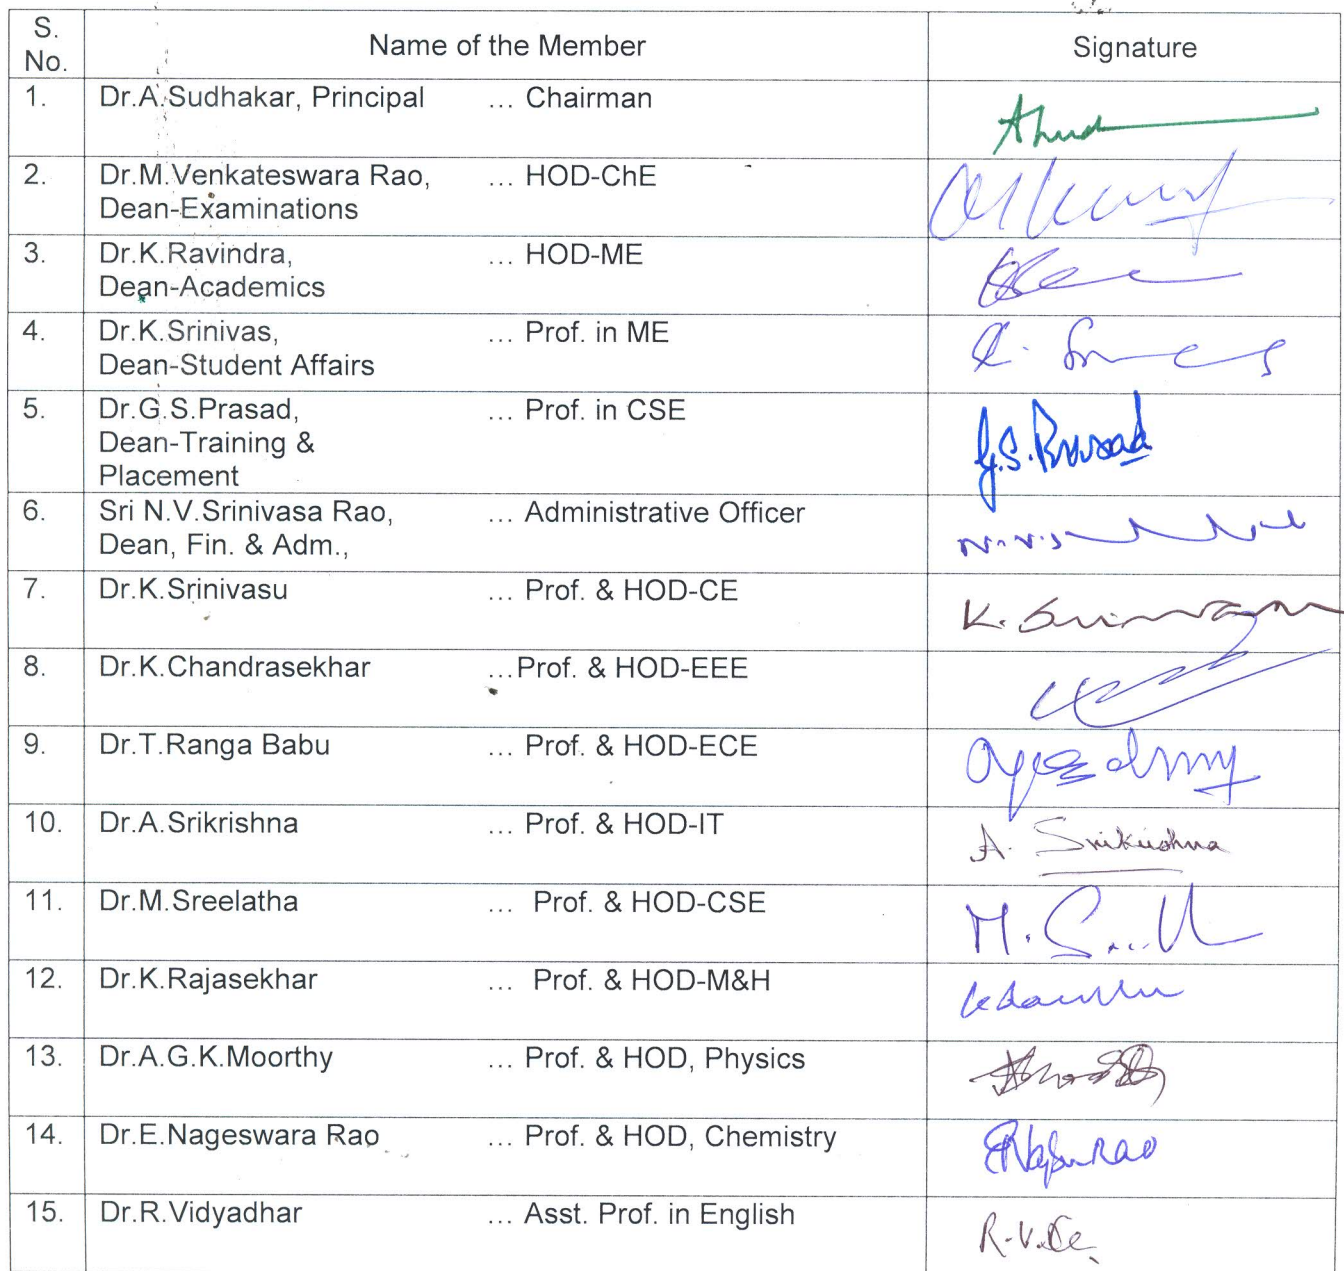 S. No. Name of the Member Signature
1. Dr.A.Sudhakar, Principal ... Chairman
2. Dr.M.Venkateswara Rao, ... HOD-ChE
Dean-Examinations
3. Dr.K.Ravindra, ... HOD-ME
Dean-Academics
4. Dr.K.Srinivas, ... Prof. in ME
Dean-Student Affairs
5. Dr.G.S.Prasad, ... Prof. in CSE
Dean-Training &
Placement
G.S.Prasad
6. Sri N.V.Srinivasa Rao, ... Administrative Officer
Dean, Fin. & Adm.,
7. Dr.K.Srinivasu ... Prof. & HOD-CE
8. Dr.K.Chandrasekhar ...Prof. & HOD-EEE
9. Dr.T.Ranga Babu ... Prof. & HOD-ECE
10. Dr.A.Srikrishna ... Prof. & HOD-IT A. Srikrishna
11. Dr.M.Sreelatha ... Prof. & HOD-CSE
12. Dr.K.Rajasekhar ... Prof. & HOD-M&H
13. Dr.A.G.K.Moorthy ... Prof. & HOD, Physics
14. Dr.E.Nageswara Rao ... Prof. & HOD, Chemistry
15. Dr.R.Vidyadhar ... Asst. Prof. in English